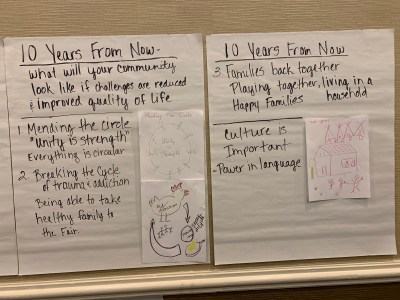 10 Years From Now-
what will your community
look like if challenges are reduced
& improved quality of life
1 Mending the circle
"Unity is strength"
Everything is circular
2 Breaking the Cycle
of trauma & addiction
Being able to take
healthy family to
the Fair.
Mending the Circle
Unity
10 Years From Now
3 Families back together
Playing together, living in a
household
Happy Families
culture is
Important
-Power in language